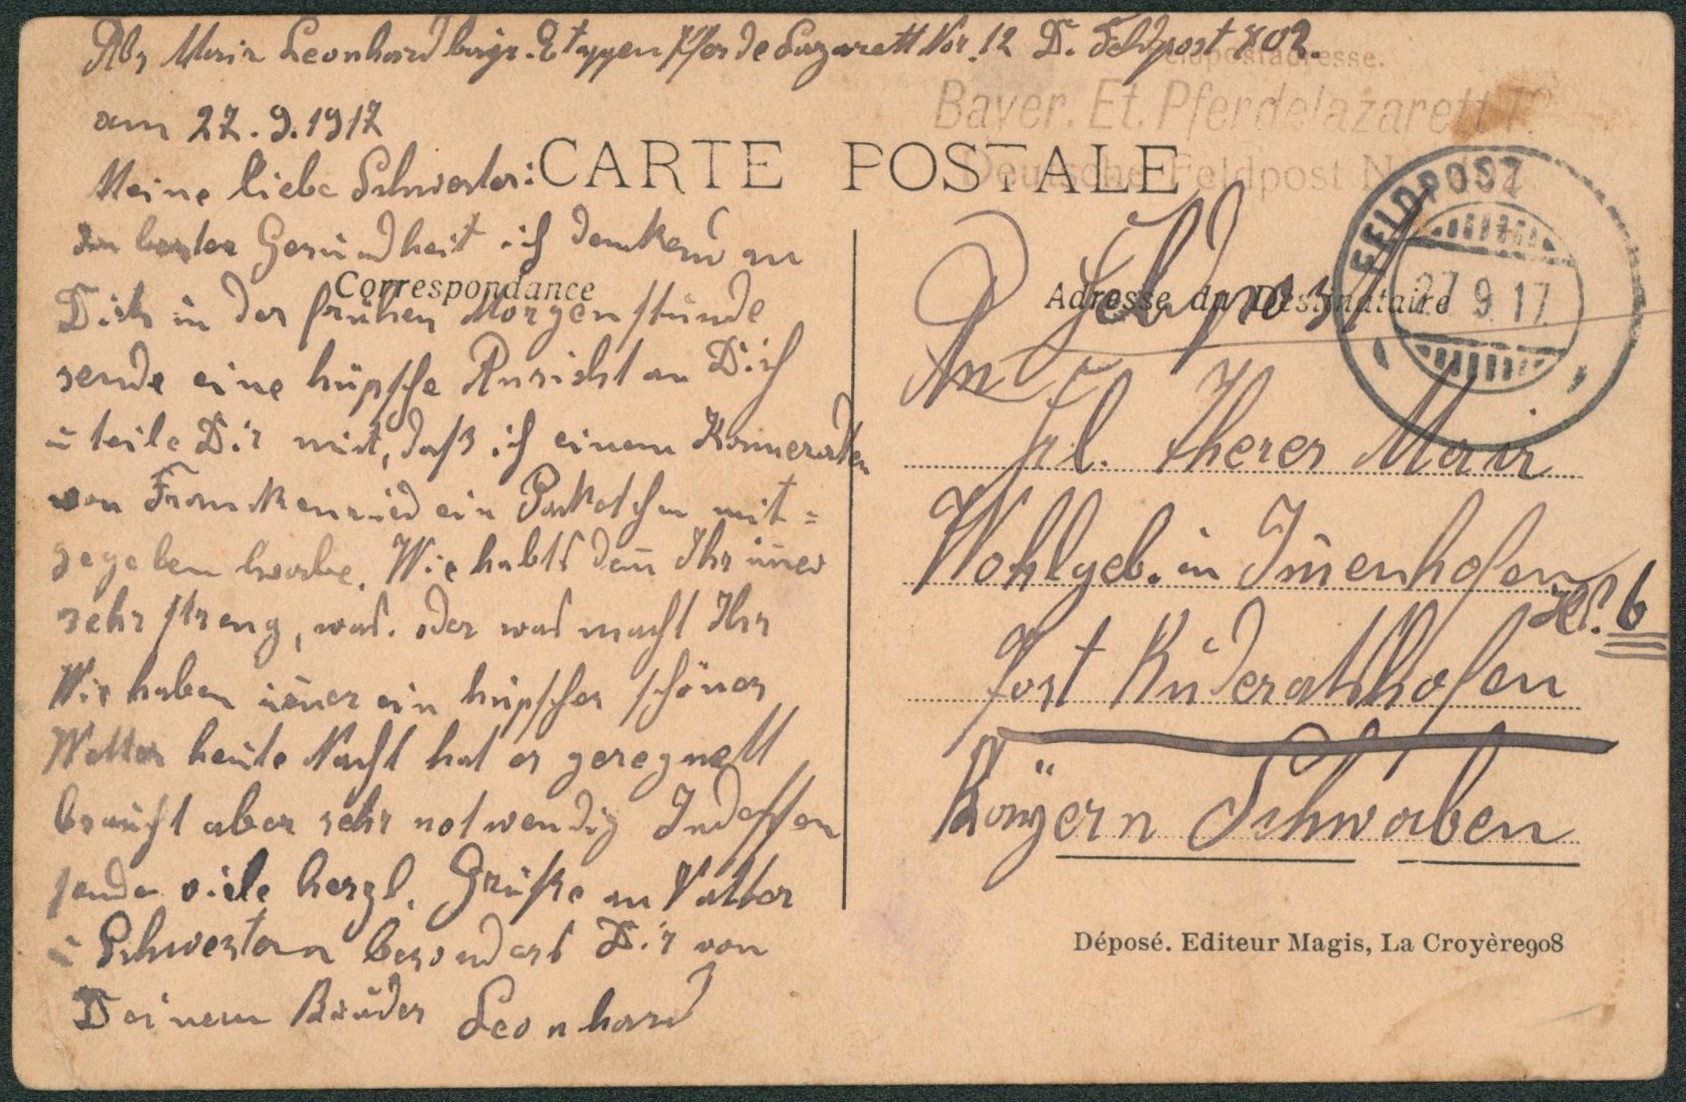 Abs Mair Leonhard bayr. Etappen Pferde Lazarett Nr. 12 D. Feldpost 802.
Feldpostadresse.
Bayer. Et. Pferdelazarett
Deutsche Feldpost
am 27.9.1917
CARTE POSTALE
Meine liebe Schwester:
In bester Gesundheit ich denkend an
Correspondance
Dich in der frühen Morgenstunde
sende eine hüpsche Ansicht an Dich
u teile Dir mit, daß ich einem Kameraden
von Frankenried ein Paketchen mit=
gegeben habe. Wie habts den̄ Ihr im̄er
sehr streng, was. oder was macht Ihr
Wir haben im̄er ein hüpsches schönes
Wetter heute Nacht hat es geregnett
braucht aber sehr notwendig Indessen
sende viele herzl. Grüße an Vatter
u Schwestern besonders Dir von
Deinem Bruder Leonhard
FELDPOST
27 9 17
Feldpost
Adresse du Destinataire
An
Frl. Theres Mair
Wohlgeb. in Im̄enhofen
Hs. 6
Post Ruderatshofen
Bayern Schwaben
Déposé. Editeur Magis, La Croyère908